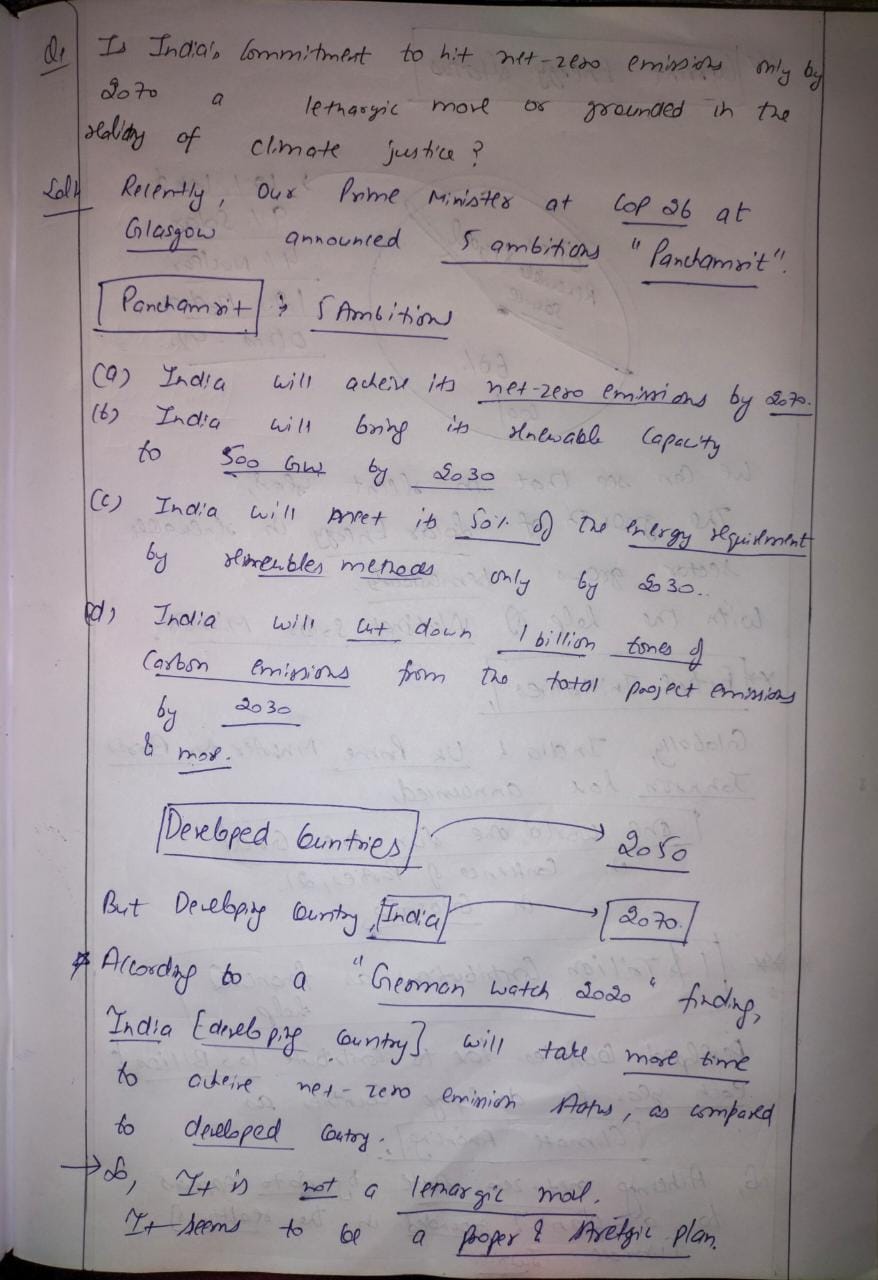 Q1 Is India's Commitment to hit net-zero emissions only by
2070 a lethargic move or grounded in the
reality of climate justice?
Soln Recently, our Prime Minister at Cop 26 at
Glasgow announced 5 ambitions "Panchamrit".
Panchamrit : 5 Ambitions
(a) India will acheive its net-zero emissions by 2070.
(b) India will bring its renewable capacity
to 500 GW by 2030
(c) India will meet its 50% of the energy requirement
by renewables methods only by 2030.
(d) India will cut down 1 billion tones of
Carbon emissions from the total project emissions
by 2030
& more.
Developed Countries → 2050
But Developing Country, India → 2070.
* According to a "German watch 2020" finding,
India [developing country] will take more time
to acheive net-zero emission status, as compared
to developed contry.
→ So, It is not a lethargic move.
It seems to be a proper & stretgic plan.